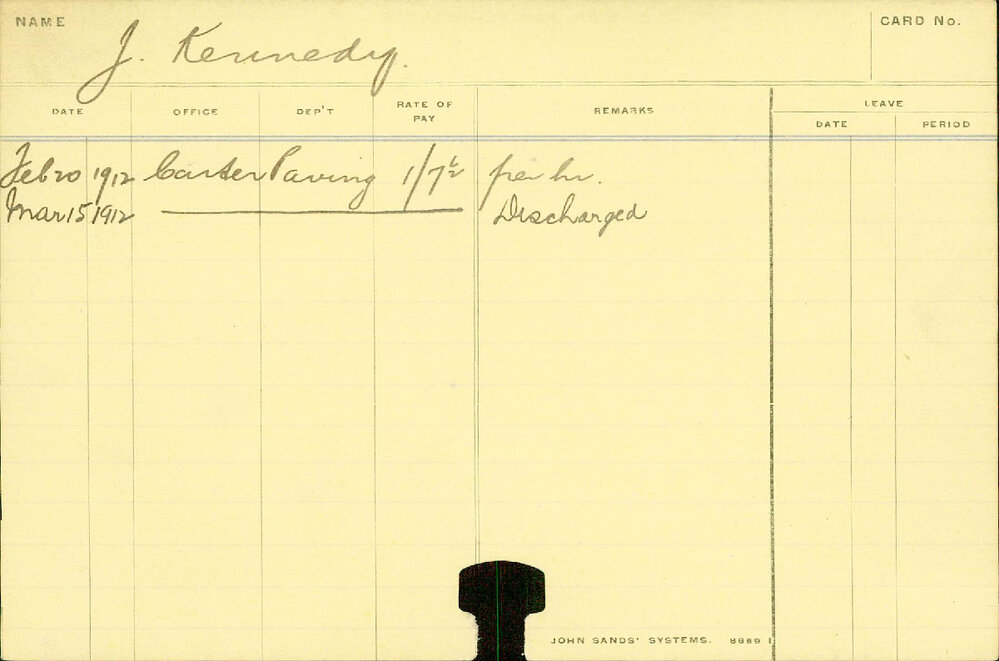 NAME J. Kennedy. CARD No.
DATE OFFICE DEP'T RATE OF PAY REMARKS LEAVE
DATE PERIOD
Feb 20 1912 Carter Paving 1/7½ per hr.
Mar 15 1912 Discharged
JOHN SANDS' SYSTEMS. 8689 1